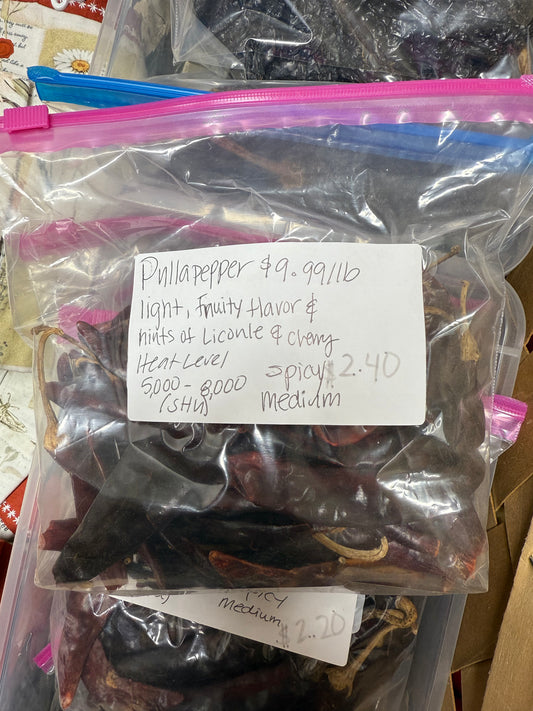 Pullapepper $9.99/lb
light, fruity flavor &
hints of Licorile & cherry
Heat Level
5,000 - 8,000 spicy $2.40
(SHU) medium
medium
$2.20